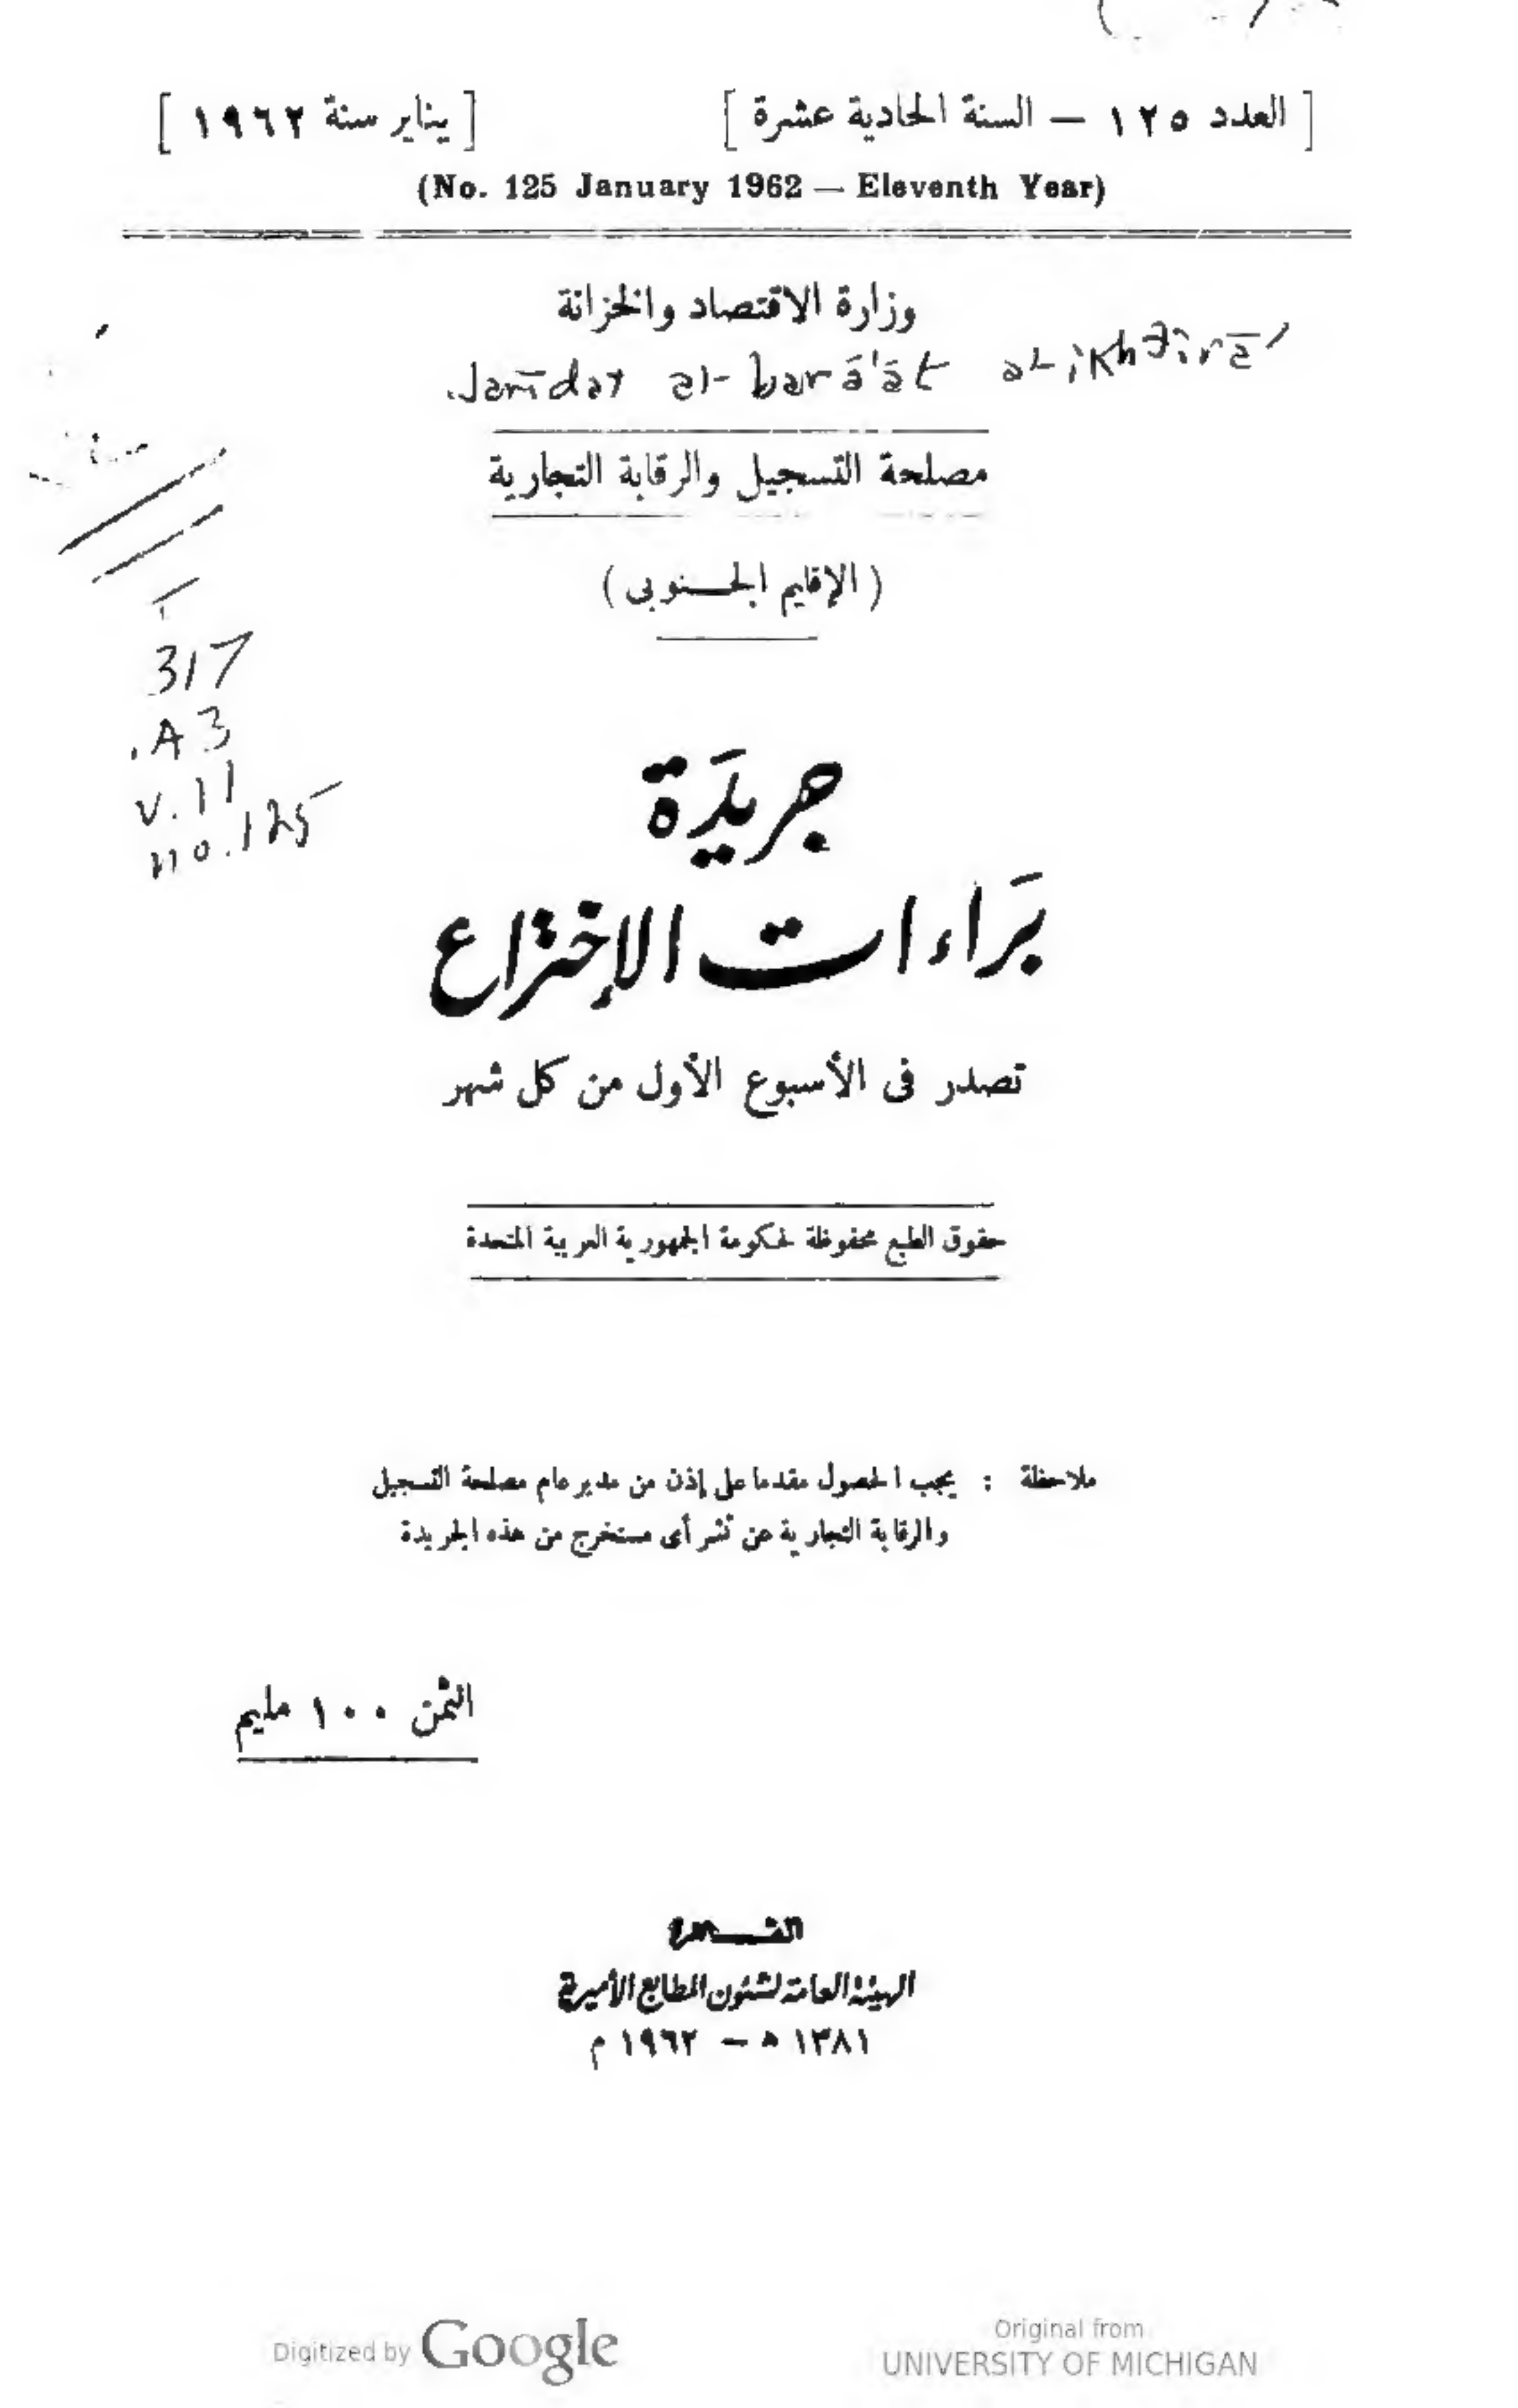 [ العدد ١٢٥ – السنة الحادية عشرة ] [ يناير سنة ١٩٦٢ ]
(No. 125 January 1962 — Eleventh Year)
وزارة الاقتصاد والخزانة
Jarīdat al-barā'āt al-ikhtirā'
مصلحة التسجيل والرقابة التجارية
( الإقليم الجـنوبى )
T
317
.A3
v.11
no.125
جريدَة
بَراءات الإختراع
تصدر فى الأسبوع الأول من كل شهر
حقوق الطبع محفوظة لحكومة الجمهورية العربية المتحدة
ملاحظة : يجب الحصول مقدما على إذن من مدير عام مصلحة التسجيل
والرقابة التجارية عن نشر أى مستخرج من هذه الجريدة
الثمن ١٠٠ مليم
القـاهرة
الهيئة العامة لشئون المطابع الأميرية
١٣٨١ ه – ١٩٦٢ م
Digitized by Google
Original from
UNIVERSITY OF MICHIGAN